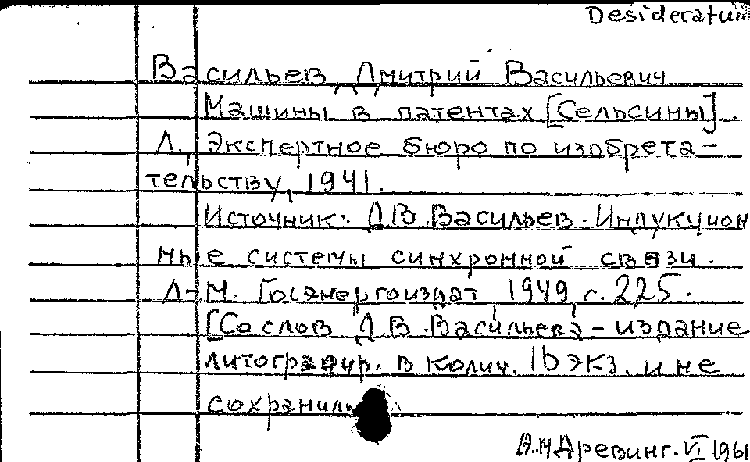 Desideratum
Васильев, Дмитрий Васильевич
Машины в патентах [Сельсины].
Л., Экспертное бюро по изобрета-
тельству, 1941.
Источник: Д.В. Васильев. Индукцион
ные системы синхронной связи.
Л-М. Госэнергоиздат, 1949, с. 225.
[Со слов Д.В. Васильева - издание
литографир. в колич. 16 экз. и не
сохранил
А.М Древинг. VI 1961